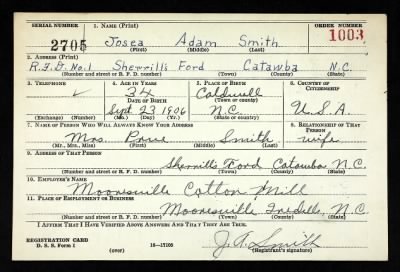 SERIAL NUMBER 1. NAME (Print) ORDER NUMBER
2705 Josea Adam Smith 1003
(First) (Middle) (Last)
2. ADDRESS (Print)
R.F.D. No. 1 Sherrills Ford Catawba N.C.
(Number and street or R. F. D. number) (Town) (County) (State)
3. TELEPHONE 4. AGE IN YEARS 5. PLACE OF BIRTH 6. COUNTRY OF CITIZENSHIP
34 Caldwell
DATE OF BIRTH (Town or county)
Sept. 23 1906 N.C. U.S.A.
(Exchange) (No.) (Mo.) (Day) (Yr.) (State or country)
7. NAME OF PERSON WHO WILL ALWAYS KNOW YOUR ADDRESS 8. RELATIONSHIP OF THAT PERSON
Mrs. Smith wife
(Mr., Mrs., Miss) (First) (Middle) (Last)
9. ADDRESS OF THAT PERSON
Sherrills Ford Catawba N.C.
(Number and street or R. F. D. number) (Town) (County) (State)
10. EMPLOYER'S NAME
Mooresville Cotton Mill
11. PLACE OF EMPLOYMENT OR BUSINESS
Mooresville Iredell, N.C.
(Number and street or R. F. D. number) (Town) (County) (State)
I AFFIRM THAT I HAVE VERIFIED ABOVE ANSWERS AND THAT THEY ARE TRUE.
REGISTRATION CARD
D. S. S. Form 1 (over) 16—17105 J. A. Smith
(Registrant's signature)